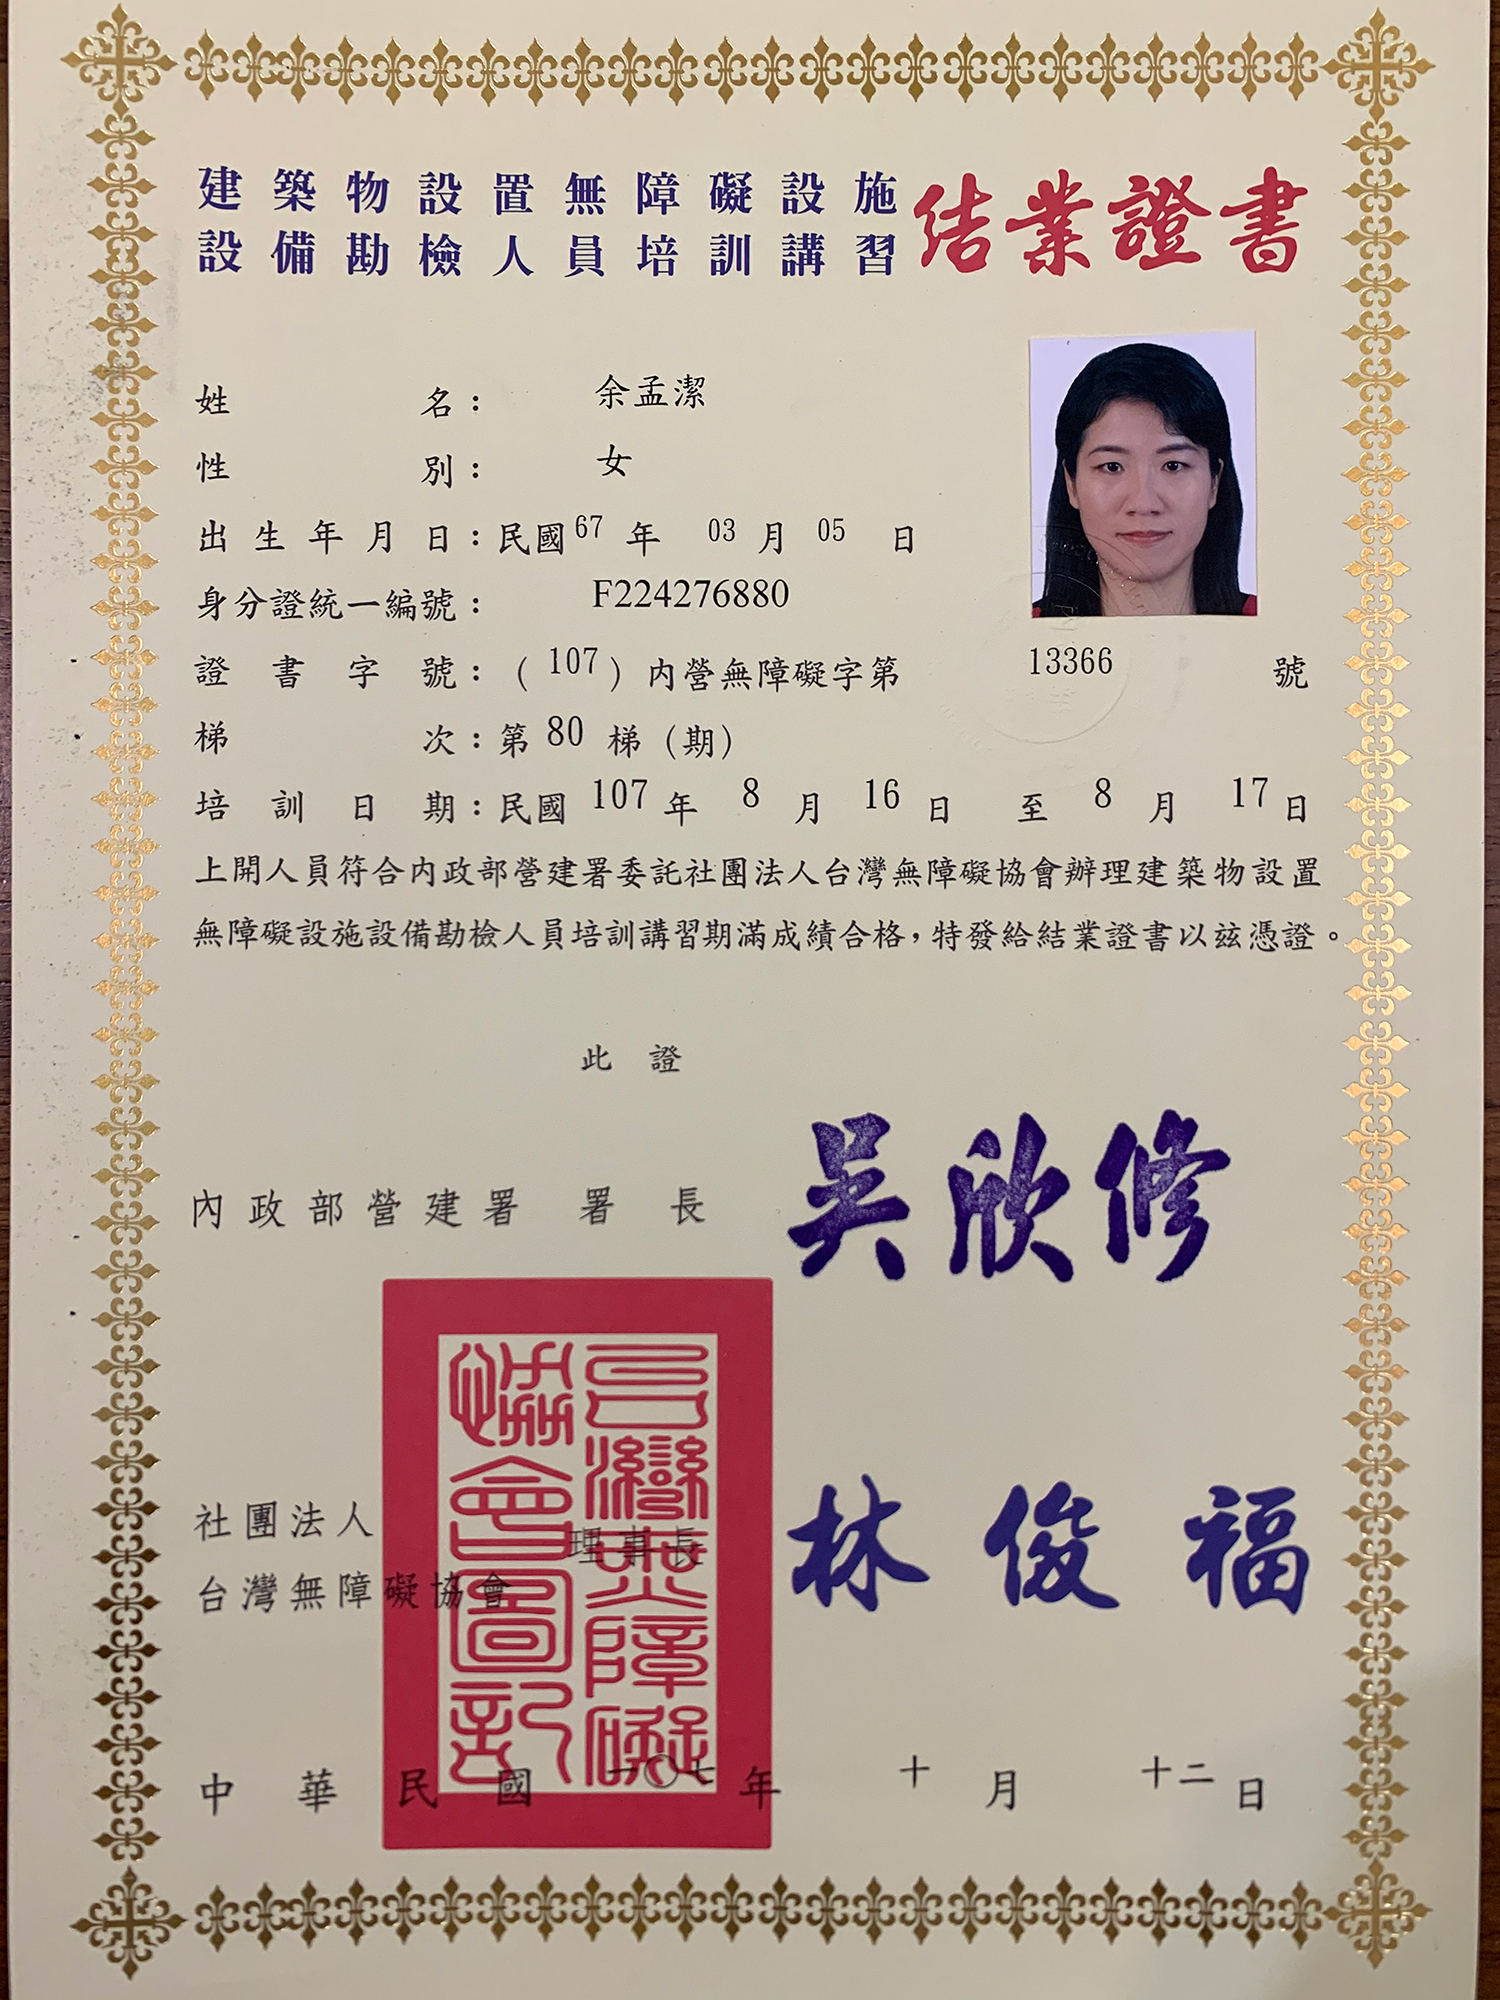 建築物設置無障礙設施
設備勘檢人員培訓講習
結業證書
姓名：余孟潔
性別：女
出生年月日：民國67年03月05日
身分證統一編號：F224276880
證書字號：（107）內營無障礙字第13366號
梯次：第80梯（期）
培訓日期：民國107年8月16日至8月17日
上開人員符合內政部營建署委託社團法人台灣無障礙協會辦理建築物設置
無障礙設施設備勘檢人員培訓講習期滿成績合格，特發給結業證書以茲憑證。
此證
內政部營建署署長 吳欣修
社團法人
台灣無障礙協會 理事長 林俊福
台灣無障礙
協會圖記
中華民國一〇七年十月十二日